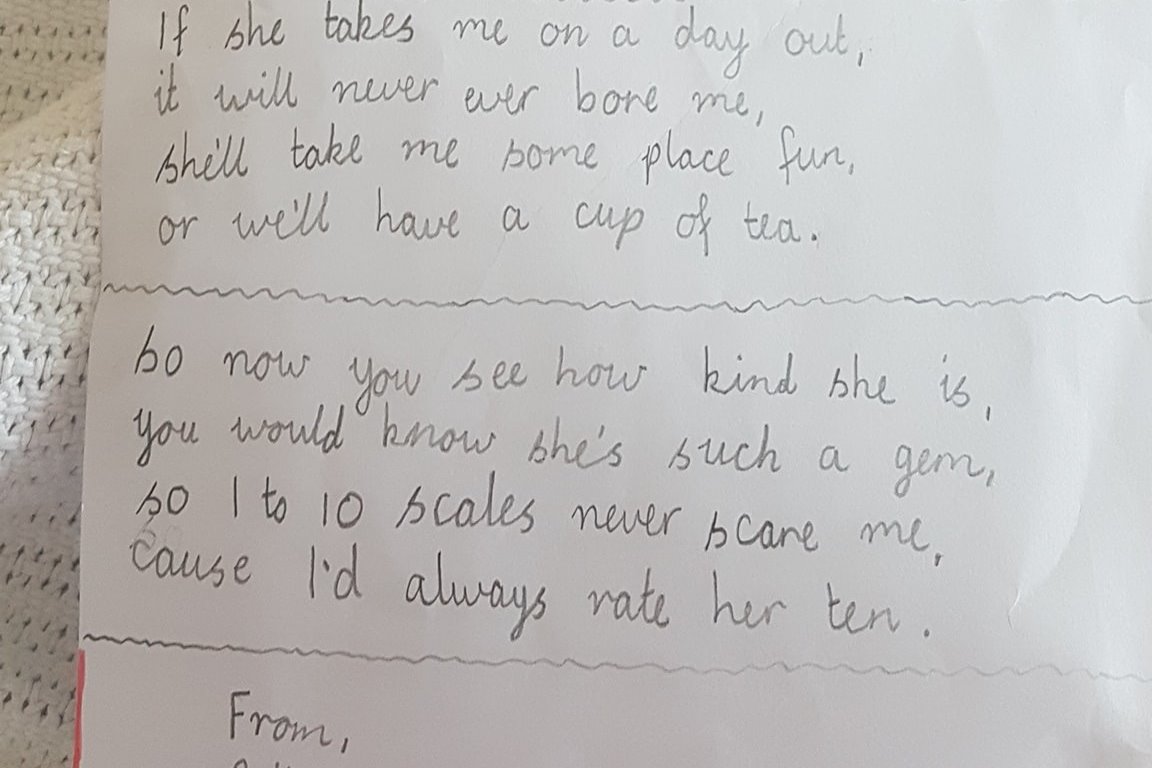 If she takes me on a day out,
it will never ever bore me,
she'll take me some place fun,
or we'll have a cup of tea.
so now you see how kind she is,
you would know she's such a gem,
so 1 to 10 scales never scare me,
cause I'd always rate her ten.
From,